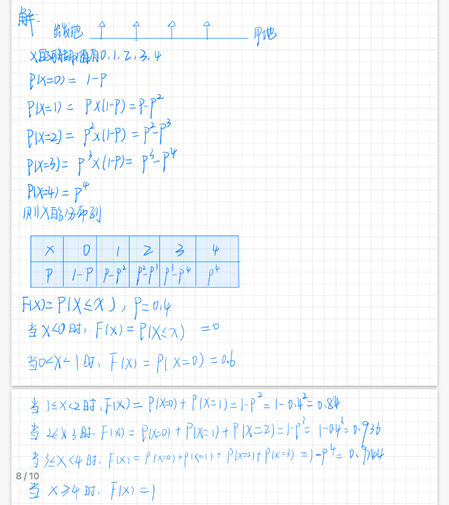 解:
出发地 甲地
X的取值有0,1,2,3,4
P(X=0)= 1-P
P(X=1)= P×(1-P)=P-P²
P(X=2)= P²×(1-P)=P²-P³
P(X=3)= P³×(1-P)= P³-P⁴
P(X=4)= P⁴
则X的分布列
X 0 1 2 3 4
P 1-P P-P² P²-P³ P³-P⁴ P⁴
F(x)=P(X≤x), P=0.4
当X<0时, F(x)=P(X≤x) =0
当0≤X<1时, F(x)= P(X=0)=0.6
当1≤X<2时, F(x)= P(X=0)+P(X=1)=1-P²=1-0.4²=0.84
当2≤X<3时 F(x)= P(X=0)+P(X=1)+P(X=2)=1-P³=1-0.4³=0.936
当3≤X<4时, F(x)= P(X=0)+P(X=1)+P(X=2)+P(X=3)=1-P⁴=0.9744
8/10
当 X≥4时, F(x)=1